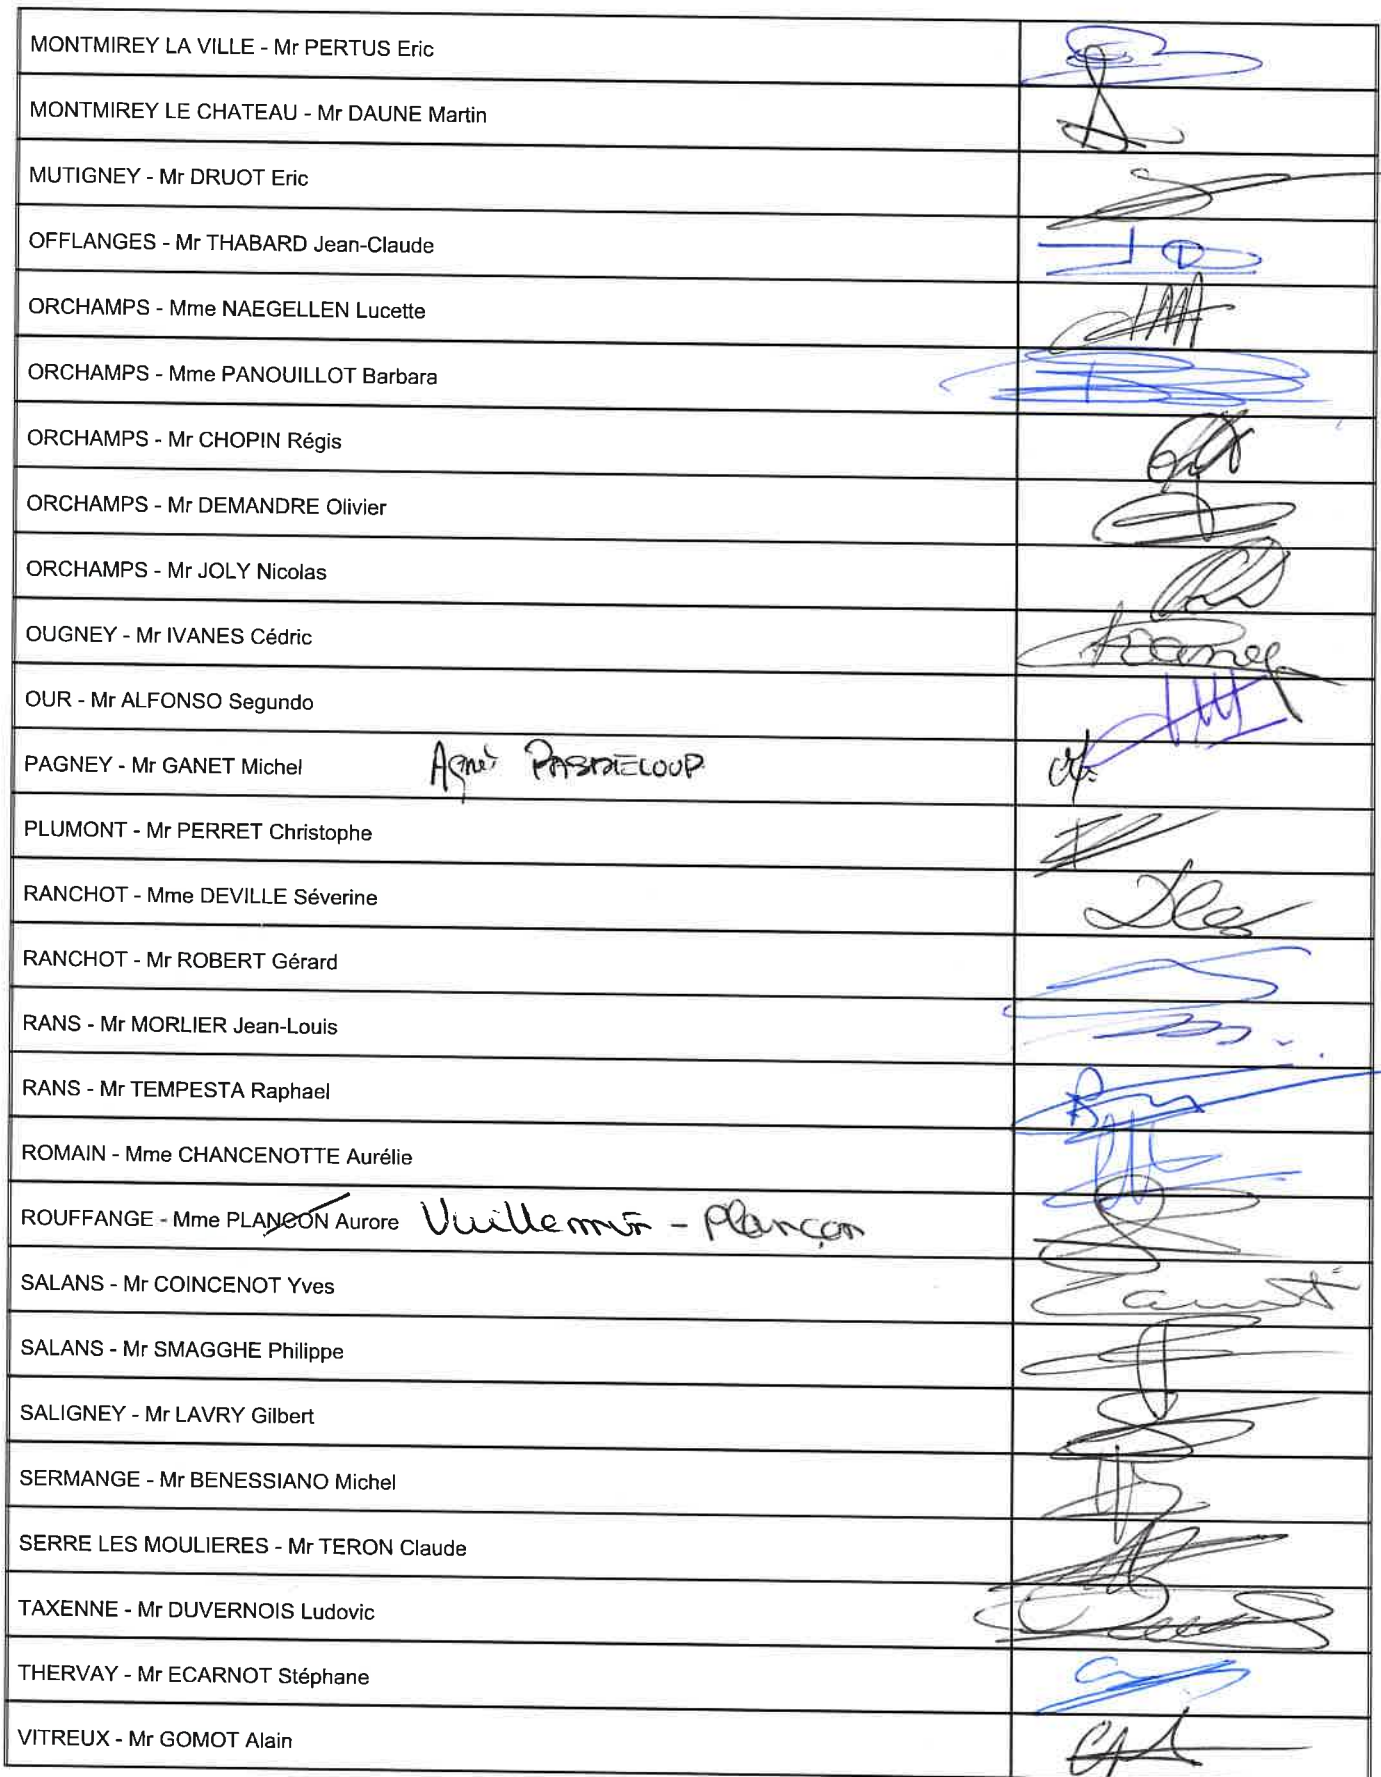 MONTMIREY LA VILLE - Mr PERTUS Eric
MONTMIREY LE CHATEAU - Mr DAUNE Martin
MUTIGNEY - Mr DRUOT Eric
OFFLANGES - Mr THABARD Jean-Claude
ORCHAMPS - Mme NAEGELLEN Lucette
ORCHAMPS - Mme PANOUILLOT Barbara
ORCHAMPS - Mr CHOPIN Régis
ORCHAMPS - Mr DEMANDRE Olivier
ORCHAMPS - Mr JOLY Nicolas
OUGNEY - Mr IVANES Cédric
OUR - Mr ALFONSO Segundo
PAGNEY - Mr GANET Michel Agnès
PLUMONT - Mr PERRET Christophe
RANCHOT - Mme DEVILLE Séverine
RANCHOT - Mr ROBERT Gérard
RANS - Mr MORLIER Jean-Louis
RANS - Mr TEMPESTA Raphael
ROMAIN - Mme CHANCENOTTE Aurélie
ROUFFANGE - Mme PLANÇON Aurore Vuillemin - Plançon
SALANS - Mr COINCENOT Yves
SALANS - Mr SMAGGHE Philippe
SALIGNEY - Mr LAVRY Gilbert
SERMANGE - Mr BENESSIANO Michel
SERRE LES MOULIERES - Mr TERON Claude
TAXENNE - Mr DUVERNOIS Ludovic
THERVAY - Mr ECARNOT Stéphane
VITREUX - Mr GOMOT Alain